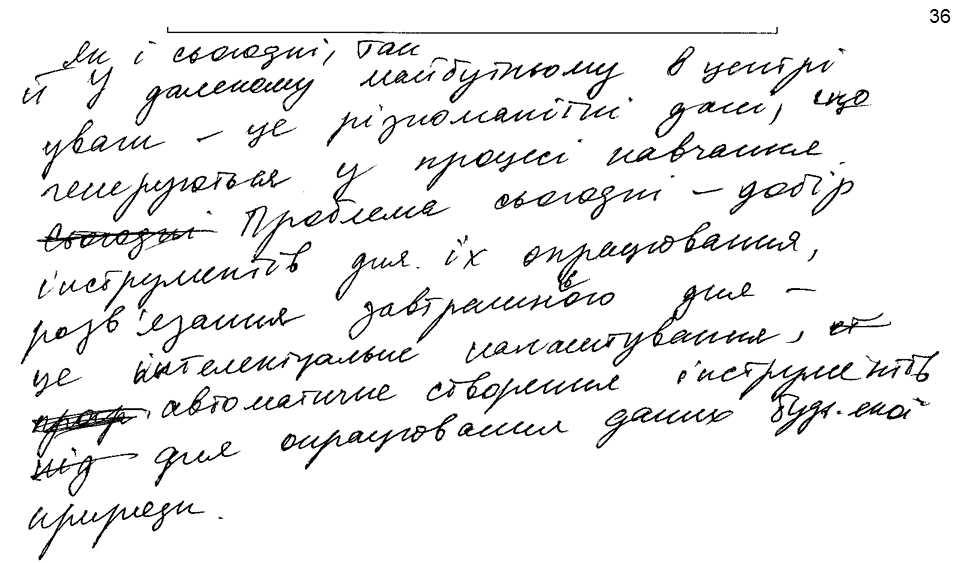 36
Як і сьогодні, так
й у далекому майбутньому в центрі
уваги – це різноманітні дані, що
генеруються у процесі навчання.
Сьогодні Проблема сьогодні – добір
інструментів для їх опрацювання,
розв'язання завтрашнього дня –
це інтелектуальне налаштування,
автоматичне створення інструментів
під для опрацювання даних будь-якої
природи.